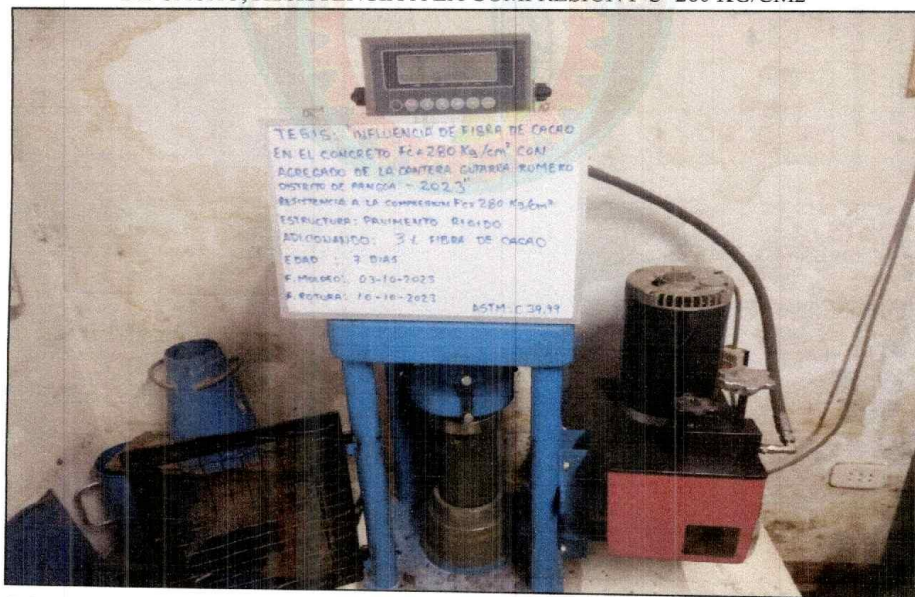 RESISTENCIA A LA COMPRESION F'C=280 KG/CM2
TESIS: "INFLUENCIA DE FIBRA DE CACAO
EN EL CONCRETO Fc=280 Kg/cm² CON
AGREGADO DE LA CANTERA ROMERO
DISTRITO DE PANGOA - 2023"
RESISTENCIA A LA COMPRESION Fc=280 Kg/cm²
ESTRUCTURA: PAVIMENTO RIGIDO
ADICIONANDO: FIBRA DE CACAO
EDAD : 7 DIAS
F. MOLDEO: 03-10-2023
F. ROTURA: 10-10-2023
ASTM: C 39.99